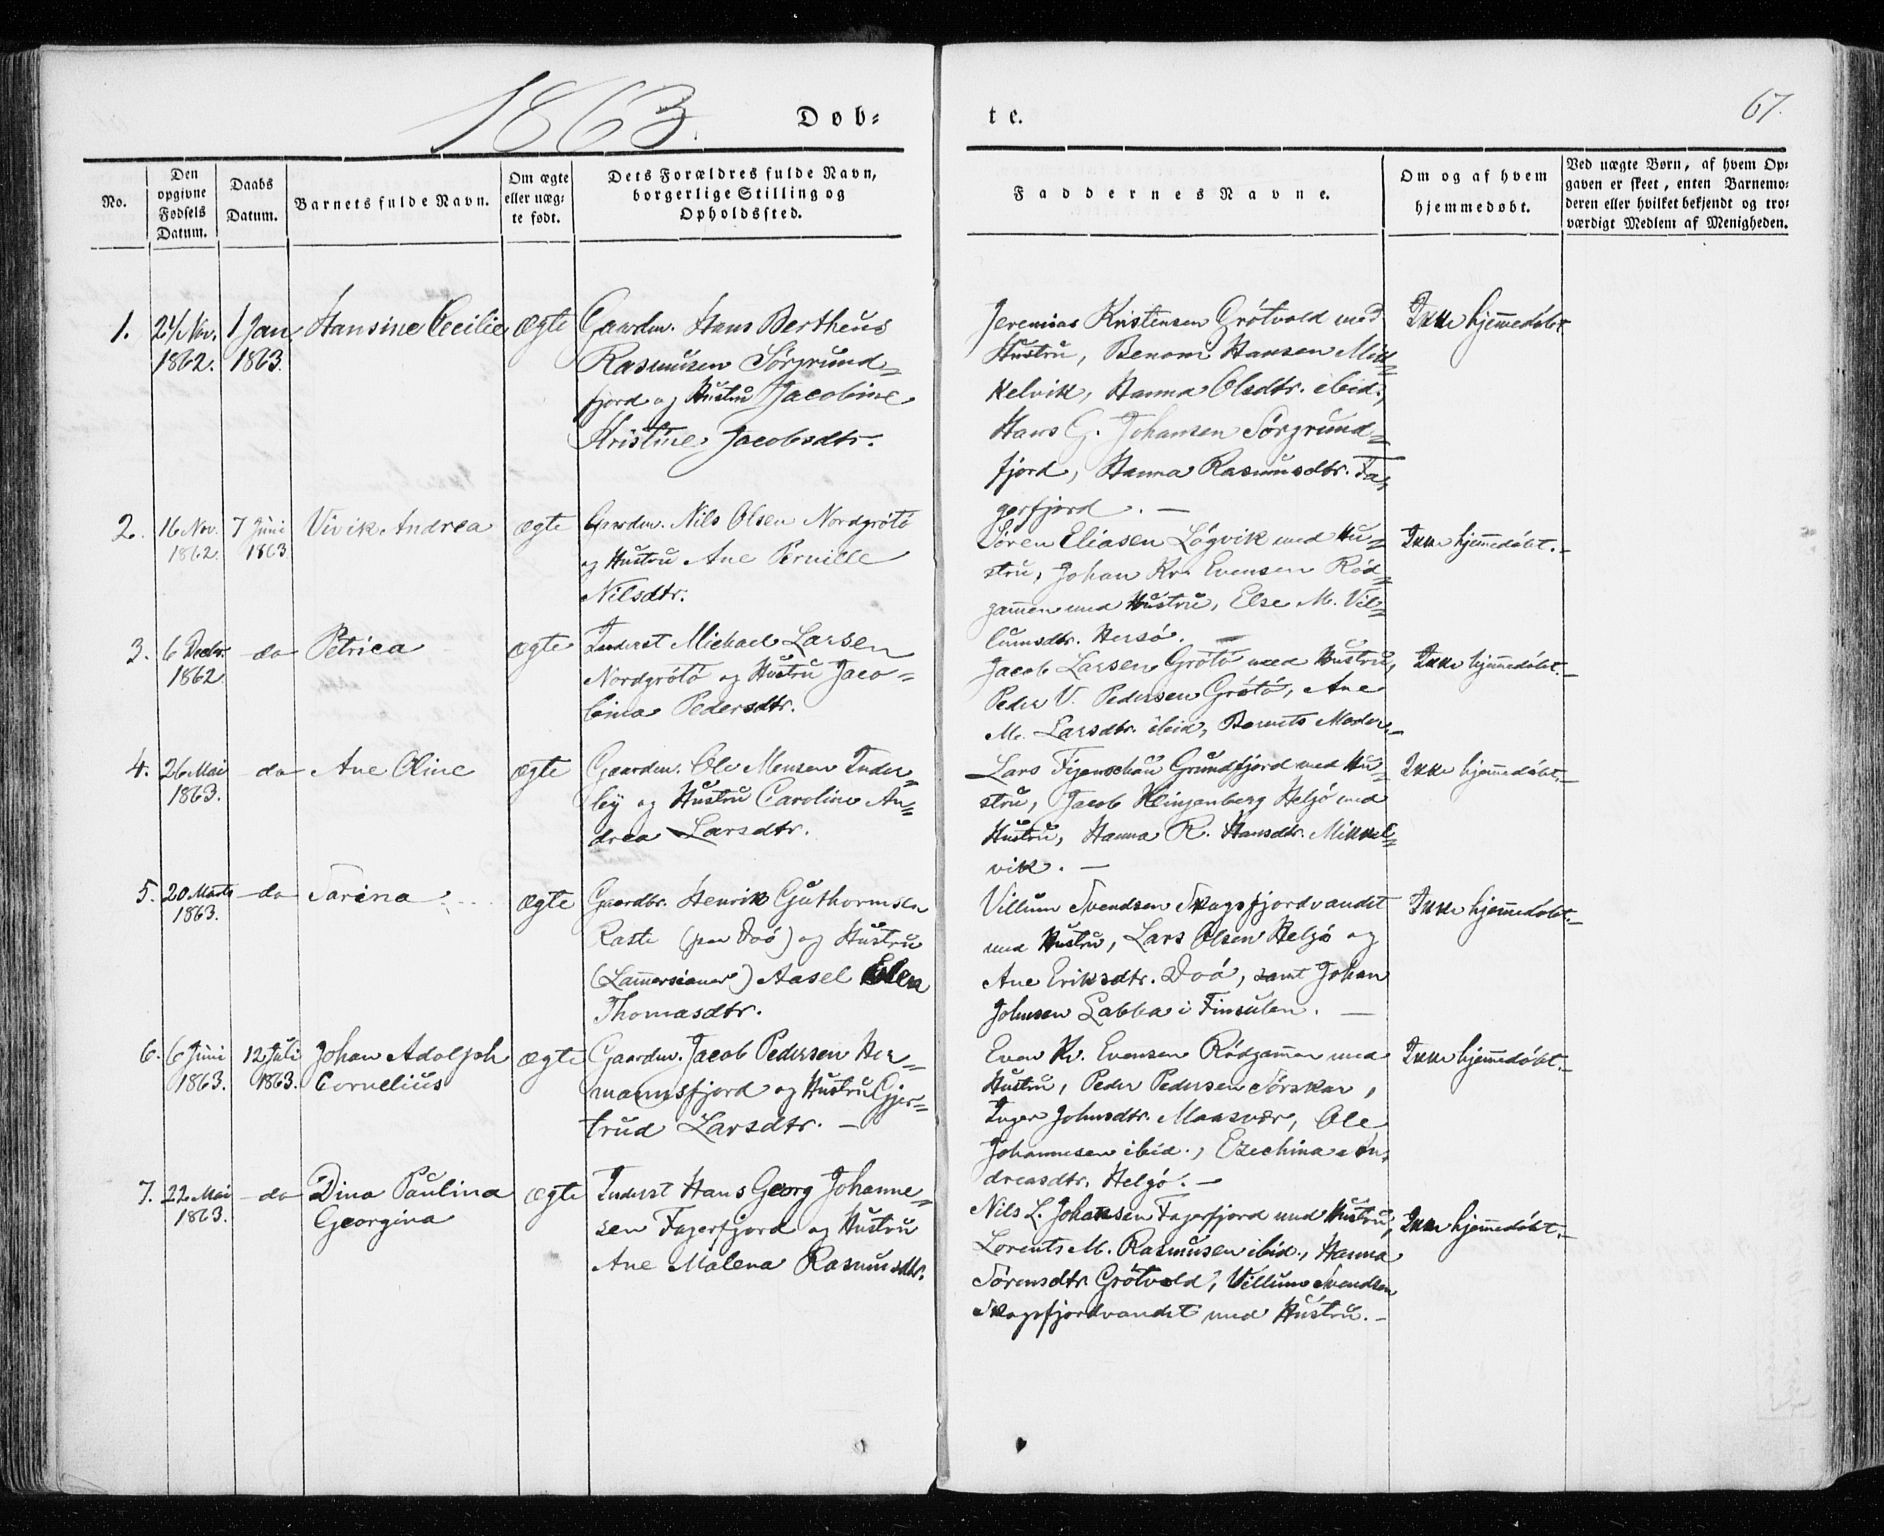 1863.
Døb-
te.
67.
No.
Den
opgivne
Fødsels
Datum.
Daabs
Datum.
Barnets fulde Navn.
Om ægte
eller uæg-
te født.
Dets Forældres fulde Navn,
borgerlige Stilling og
Opholdssted.
Faddernes Navne.
Om og af hvem
hjemmedøbt.
Ved uægte Børn, af hvem Op-
gaven er skeet, enten Barnemo-
deren eller hvilket bekjendt og tro-
værdigt Medlem af Menigheden.
1.
Nov.
1862.
1 Jan
1863.
Hansine Cecilie
ægte
Gaardm. Hans Bertheus
Rasmusen Sørgrund-
fjord og Hustru Jacobine
Kristine Jacobsdtr.
Jeremias Kristensen Grötvold med
Hustru, Benoni Hansen Mik-
kelvik, Hanna Olsdtr. ibid.,
Hans G. Johansen Sørgrund-
fjord, Hanna Rasmusdtr. Fa-
gerfjord. —
Ikke hjemmedøbt
2.
16 Nov.
1862.
7 Juni
1863
Vivik Andrea
ægte
Gaardm. Nils Olsen Nordgrötö
og Hustru Ane Pernille
Nilsdtr.
Sören Eliasen Lögvik med Hu-
stru, Johan Kr. Evensen Röd-
gammen med Hustru, Else M. Vil-
lumsdtr. Hersö. —
Ikke hjemmedøbt. —
3.
6 Decbr.
1862
do
Petrica
ægte
Inderst Michael Larsen
Nordgrötö og Hustru Jaco-
bina Pedersdtr.
Jacob Larsen Grötö med Hustru,
Peder V. Pedersen Grötö, Ane
M. Larsdtr. ibid, Barnets Moder. —
Ikke hjemmedøbt. —
4.
26 Mai
1863.
do
Ane Oline
ægte
Gaardm. Ole Monsen Inder-
by og Hustru Caroline An-
drea Larsdtr.
Lars Figenschau Grundfjord med Hu-
stru, Jacob Klingenberg Helgö med
Hustru, Hanna R. Hansdtr. Mikkel-
vik. —
Ikke hjemmedøbt. —
5.
20 Marts
1863.
do
Sarina
ægte
Gaardbr. Henrik Guthormsen
Raste (paa Doö) og Hustru
(Lammersianer) Aasel Elen
Thomasdtr.
Villum Svendsen Skogsfjordvandet
med Hustru, Lars Olsen Helgö og
Ane Eriksdtr. Doö, samt Johan
Johnsen Labba i Finsulen. —
Ikke hjemmedøbt. —
6.
6 Juni
1863.
12 Juli
1863.
Johan Adolph
Cornelius
ægte
Gaardm. Jacob Pedersen Her-
mannsfjord og Hustru Gjer-
trud Larsdtr. —
Even Kr. Evensen Rödgammen med
Hustru, Peder Pedersen Sörskar,
Inger Johnsdtr. Maasvær, Ole
Johannesen ibid., Ezechina An-
dreasdtr. Helgö. —
Ikke hjemmedøbt. —
7.
22 Mai
1863.
do
Dina Paulina
Georgina
ægte
Inderst Hans Georg Johanne-
sen Fagerfjord og Hustru
Ane Malena Rasmusdtr.
Nils L. Johansen Fagerfjord med Hustru,
Lorents M. Rasmusen ibid., Hanna
Sörensdtr. Grötvold, Villum Svendsen
Skogsfjordvandet med Hustru. —
Ikke hjemmedøbt. —